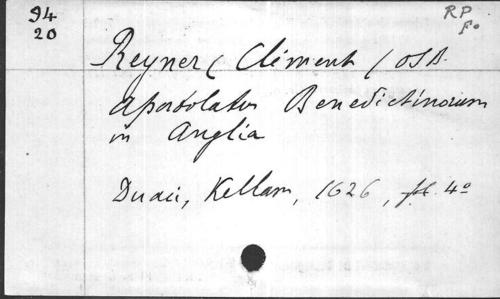 94
20
RP
fo
Reyner (Clément) OSB.
Apostolatus Benedictinorum
in Anglia
Duaci, Kellam, 1626, 4º